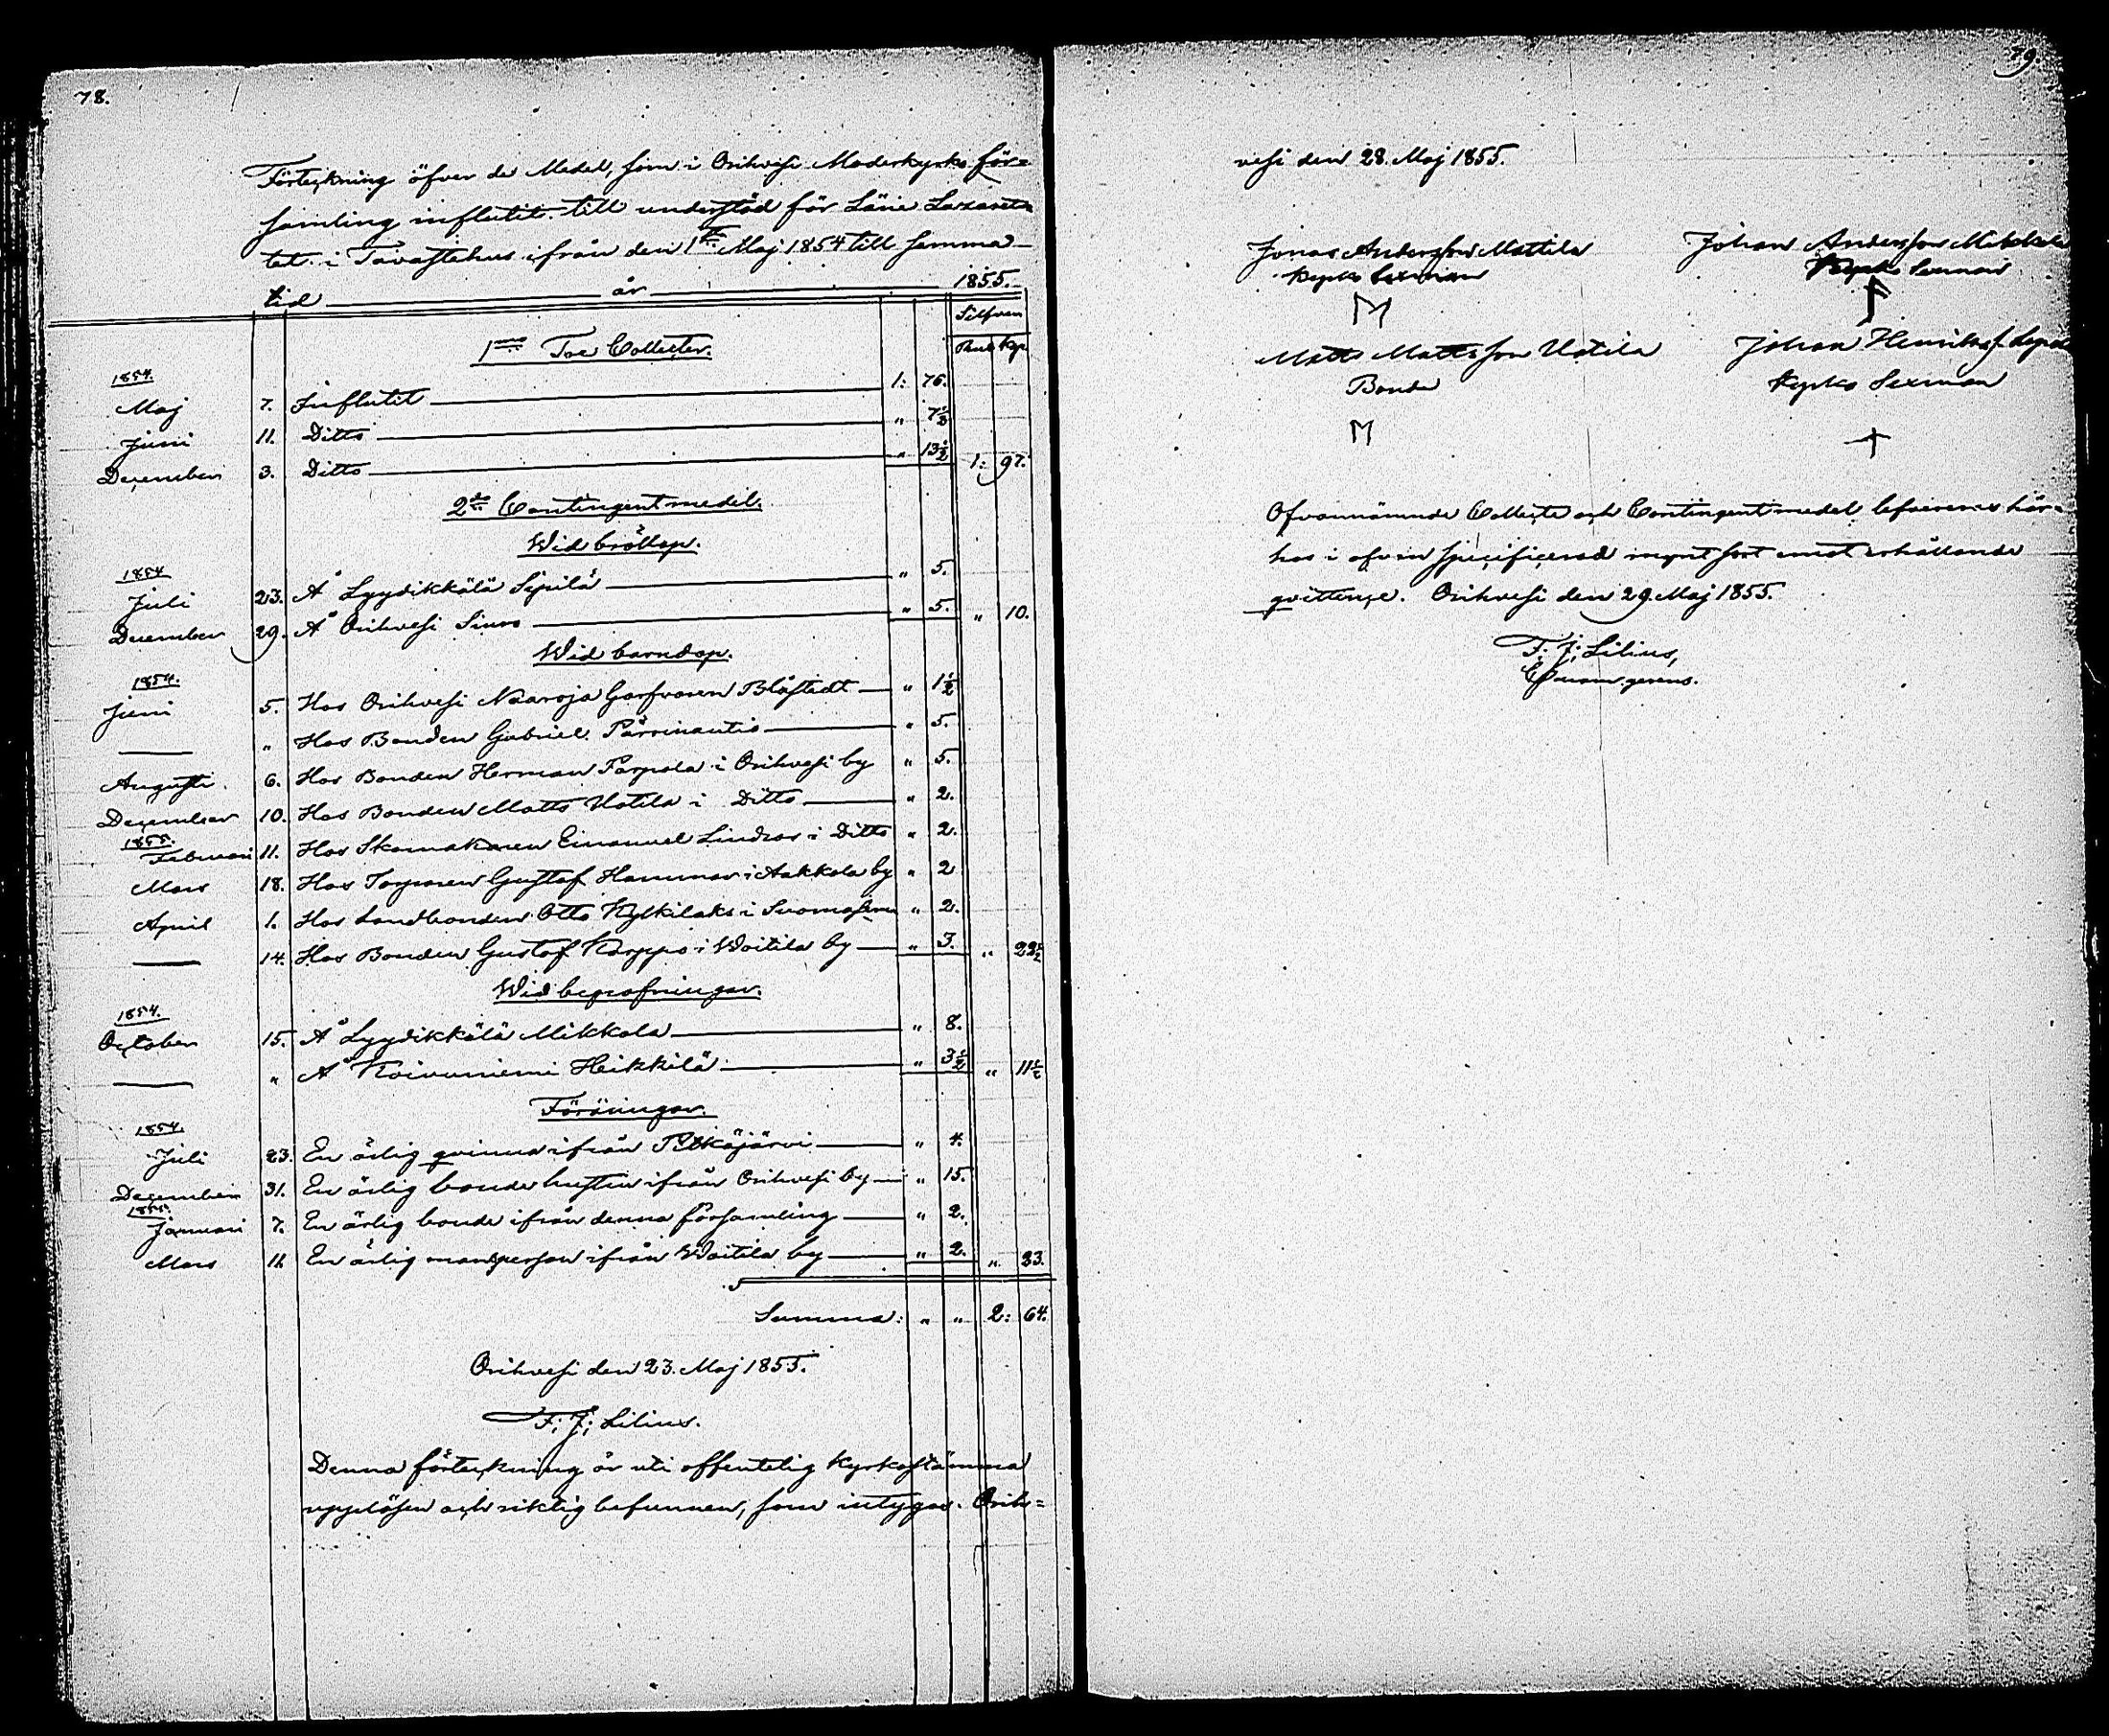 78.
Förteckning öfver de Medel, som i Orihvesi Moderkyrko för=
samling influtit till understöd för Läne Lazaret=
tet i Tavastehus ifrån den 1sta Maj 1854 till samma
tid år 1855.
Silfver
Rub Kop
1mo Tre Collecter.
1854.
Maj 7. Influtit 1: 76.
Juni 11. Ditto " 7½
December 3. Ditto " 13½ 1: 97.
2do Contingentmedel.
Wid bröllop.
1854
Juli 23. Å Lyydikkälä Sepilä " 5.
December 29. Å Orihvesi Siuro " 5. " 10.
Wid barndop.
1854.
Juni 5. Hos Orihvesi Naaroja Garfvaren Blåstedt " 1½
" Hos Bonden Gabriel Pärrinautio " 5.
Augusti 6. Hos Bonden Herman Parpola i Orihvesi by " 5.
December 10. Hos Bonden Matts Uotila i Ditto " 2.
1855.
Februari 11. Hos Skomakaren Emanuel Lindros i Ditto " 2.
Mars 18. Hos Torparen Gustaf Hammar i Aakkola by " 2
April 1. Hos Landbonden Otto Kylkilaks i " 2.
14. Hos Bonden Gustaf Karppo i Woitila by " 3. " 22½
Wid begrafningar.
1854.
October 15. Å Lyydikkälä Mikkola " 8.
" Å Koivuniemi Heikkilä " 3½ " 11½
Föräringar.
1854.
Juli 23. En ärlig qvinna ifrån Pitkäjärvi " 4.
December 31. En ärlig bonde hustru ifrån Orihvesi by " 15.
1855.
Januari 7. En ärlig bonde ifrån denna församling " 2.
Mars 11. En ärlig mansperson ifrån Woitila by " 2. " 23.
Summa: " " 2: 64.
Orihvesi den 23. Maj 1855.
F: J: Lilius.
Denna förteckning är uti offentelig Kyrkostämma
uppläsen och riktig befunnen, som intygas. Orih=
79.
vesi den 28. Maj 1855.
Jonas Andersson Mattila Johan Andersson Mikkola
Kyrko Sexman Kyrko Sexman
M
Matts Mattsson Uotila Johan Henriksf
Bonde Kyrko Sexman
M
Ofvannämnde Collecte och Contingentmedel lefvereras här=
hos i ofvan specificerad mynt sort emot erhållande
qvittence. Orihvesi den 29. Maj 1855.
F: J: Lilius,